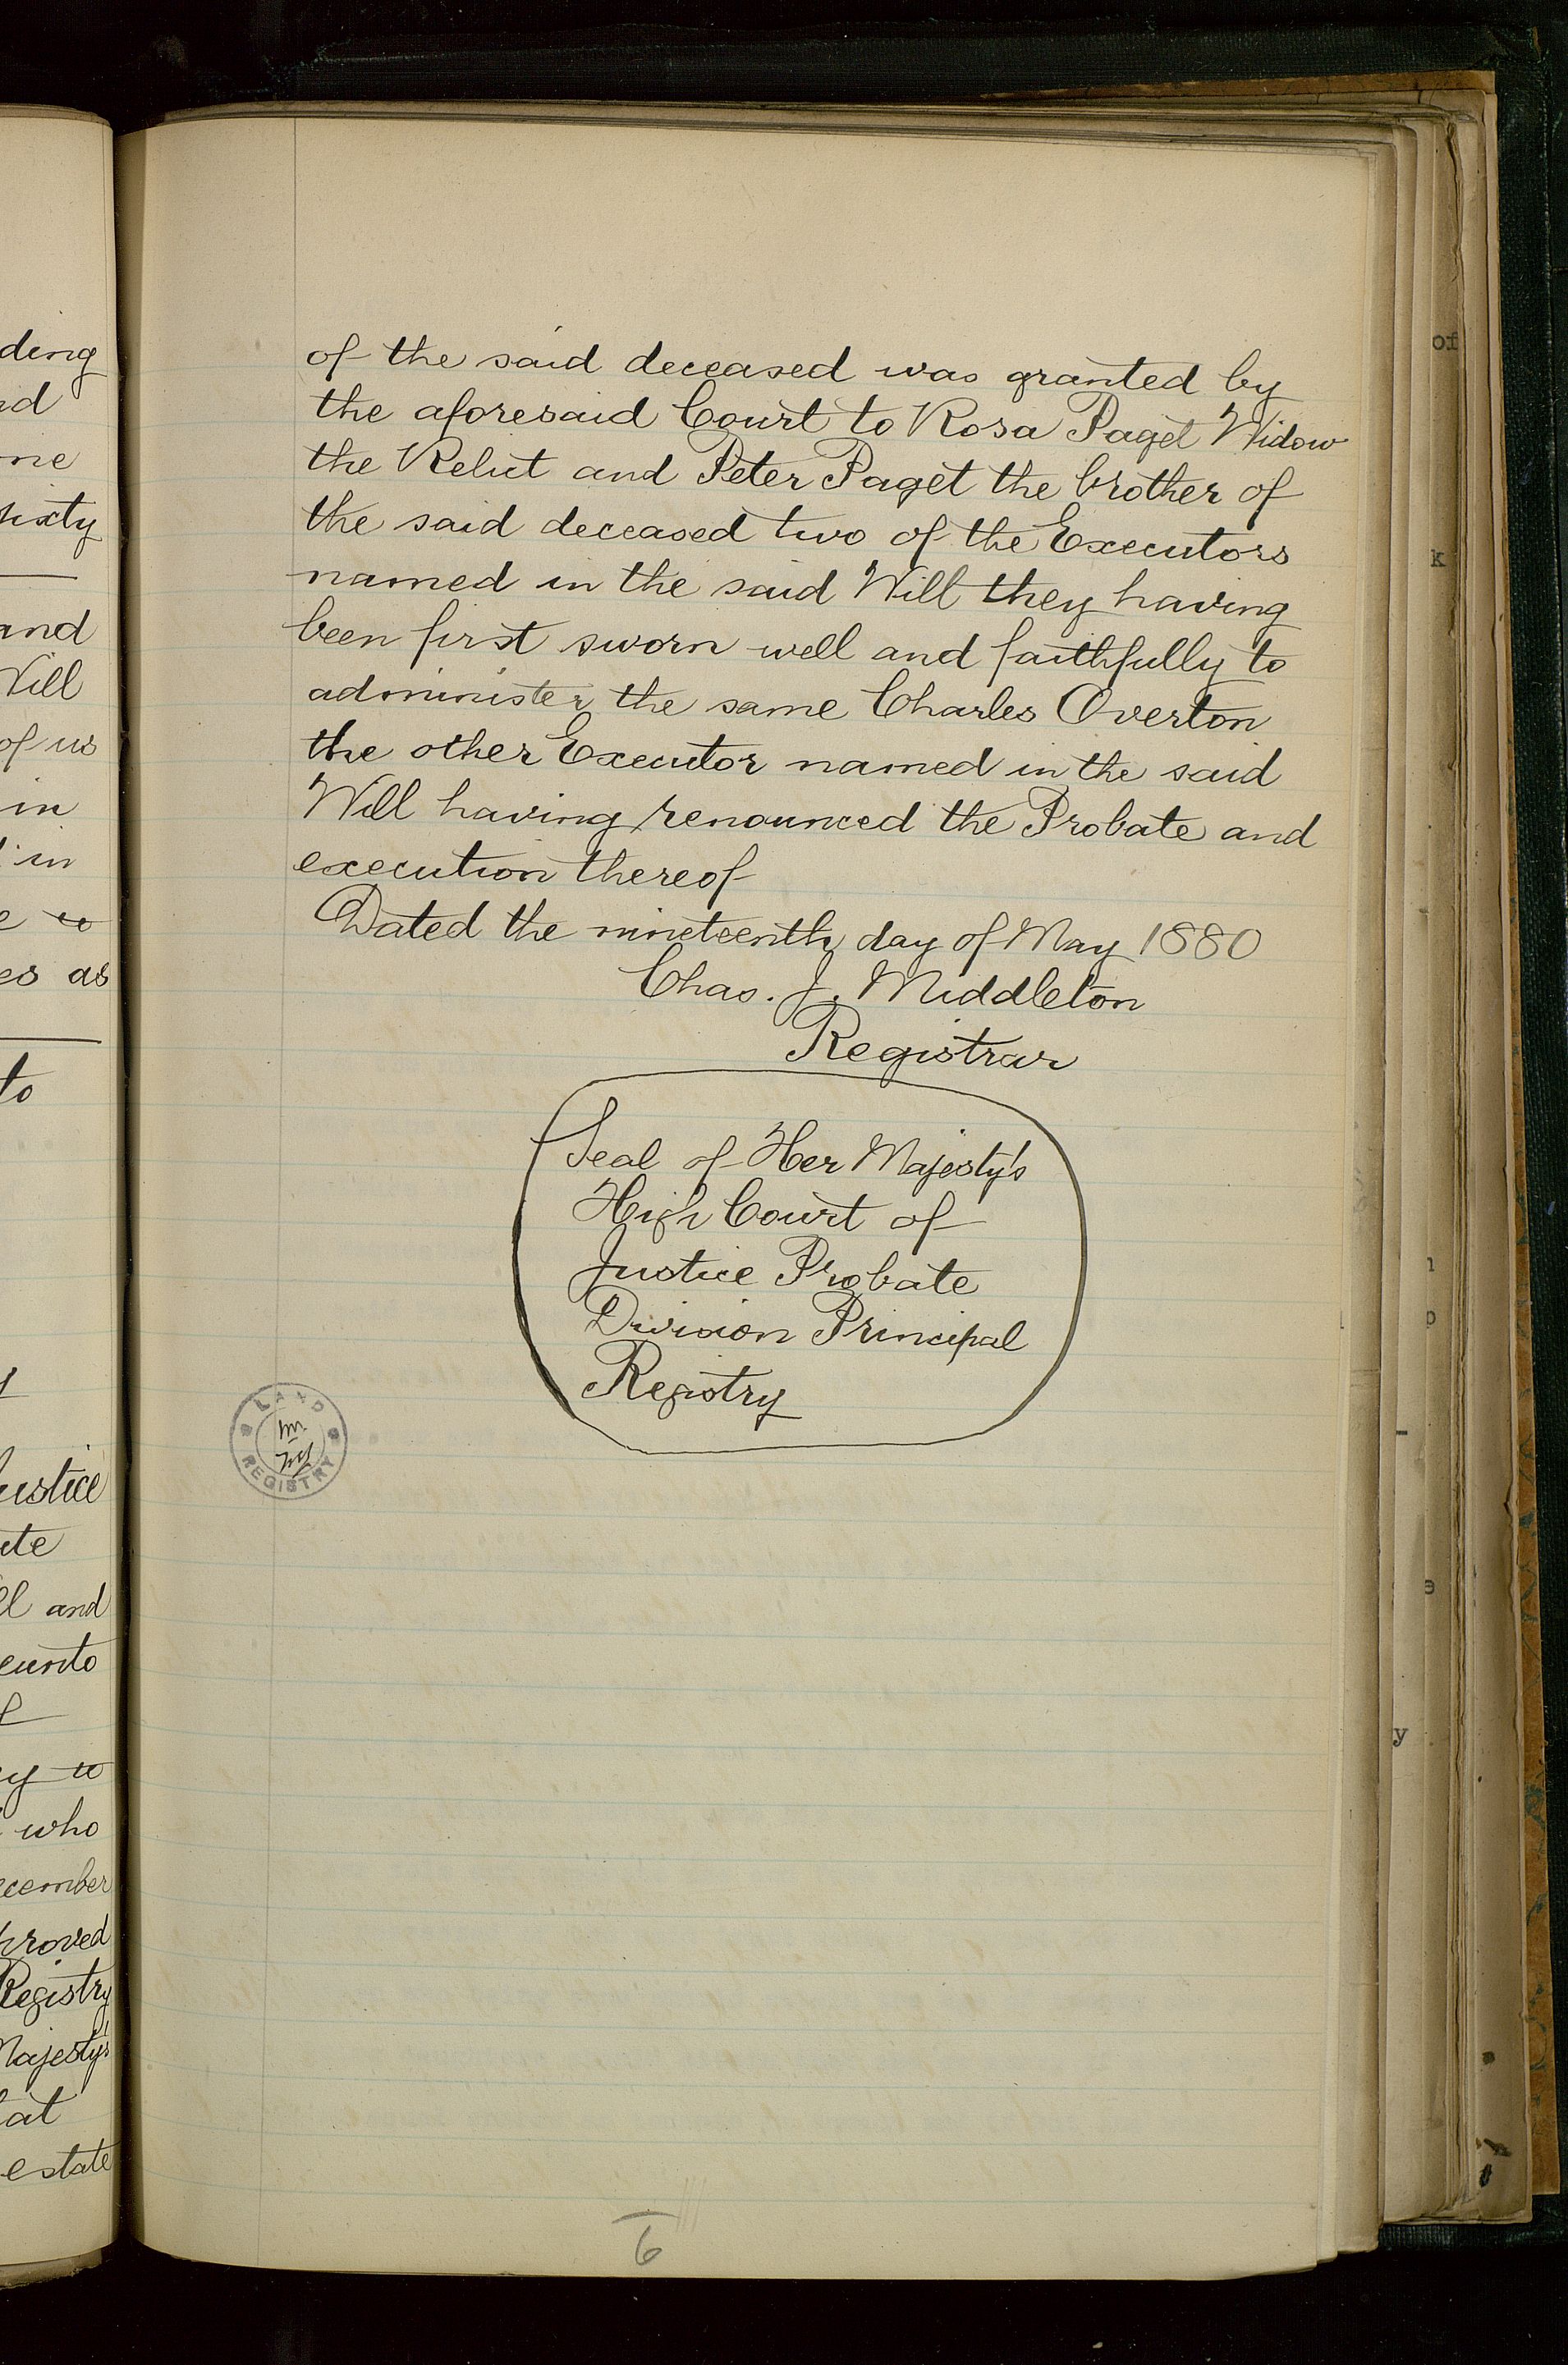 of the said deceased was granted by
the aforesaid Court to Rosa Paget Widow
the Relict and Peter Paget the brother of
the said deceased two of the Executors
named in the said Will they having
been first sworn well and faithfully to
administer the same Charles Overton
the other Executor named in the said
Will having renounced the Probate and
execution thereof
Dated the nineteenth day of May 1880
Chas. J. Middleton
Registrar
Seal of Her Majesty's
High Court of
Justice Probate
Division Principal
Registry
LAND
REGISTRY
6
ding
nd
one
sixty
and
Will
of us
in
in
to
es as
to
Justice
ate
ll and
eunto
y to
who
ecember
proved
Registry
Majesty's
at
estate
of
k
p
y